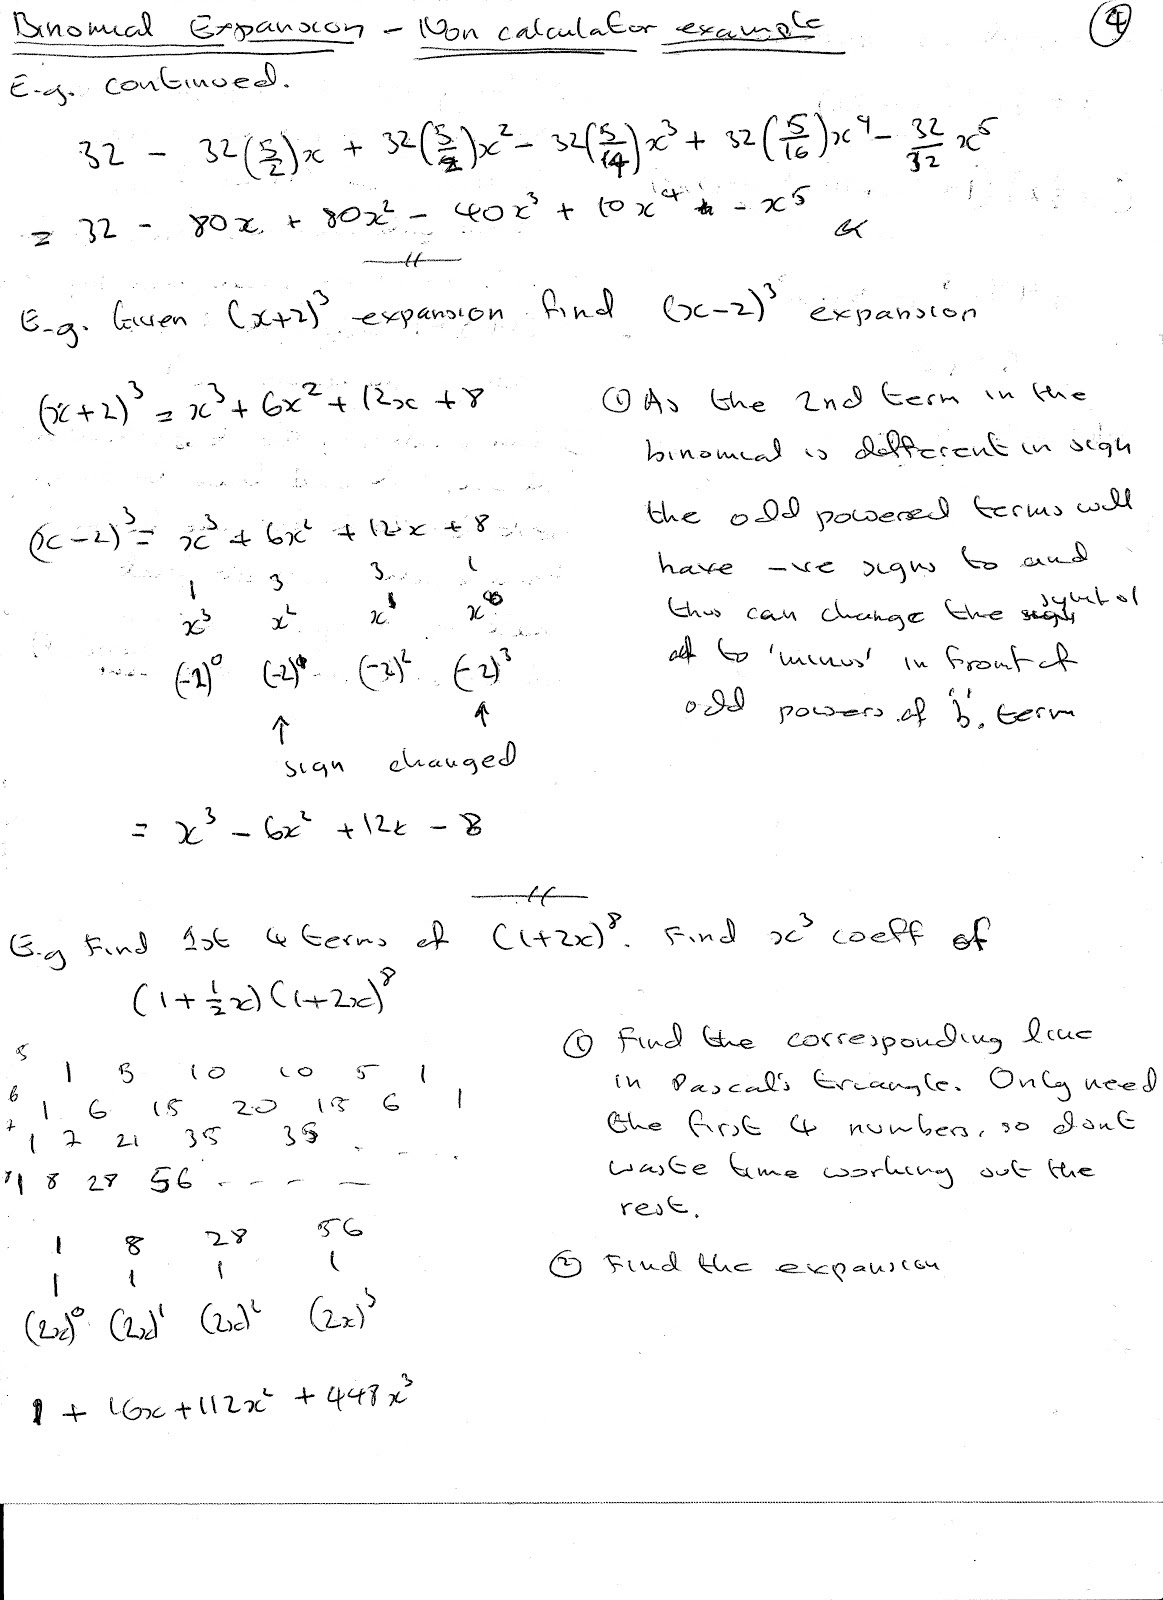 Binomial Expansion - Non calculator example
④
E.g. continued.
32 - 32(5/2)x + 32(5/2)x² - 32(5/4)x³ + 32(5/16)x⁴ - 32/32 x⁵
= 32 - 80x + 80x² - 40x³ + 10x⁴ - x⁵
E.g. Given (x+2)³ expansion find (x-2)³ expansion
(x+2)³ = x³ + 6x² + 12x + 8
① As the 2nd term in the
binomial is different in sign
the odd powered terms will
have -ve signs to and
thus can change the symbol
to 'minus' in front of
odd powers of 'b' term
(x-2)³ = x³ + 6x² + 12x + 8
1 3 3 1
x³ x² x¹ x⁰
(-2)⁰ (-2)¹ (-2)² (-2)³
↑ ↑
sign changed
= x³ - 6x² + 12x - 8
E.g Find 1st 4 terms of (1+2x)⁸. Find x³ coeff of
(1+½x)(1+2x)⁸
5 1 5 10 10 5 1
6 1 6 15 20 15 6 1
7 1 7 21 35 35 . - - -
8 1 8 28 56 - - - -
① Find the corresponding line
in Pascal's triangle. Only need
the first 4 numbers, so dont
waste time working out the
rest.
1 8 28 56
1 1 1 1
(2x)⁰ (2x)¹ (2x)² (2x)³
② Find the expansion
1 + 16x + 112x² + 448x³